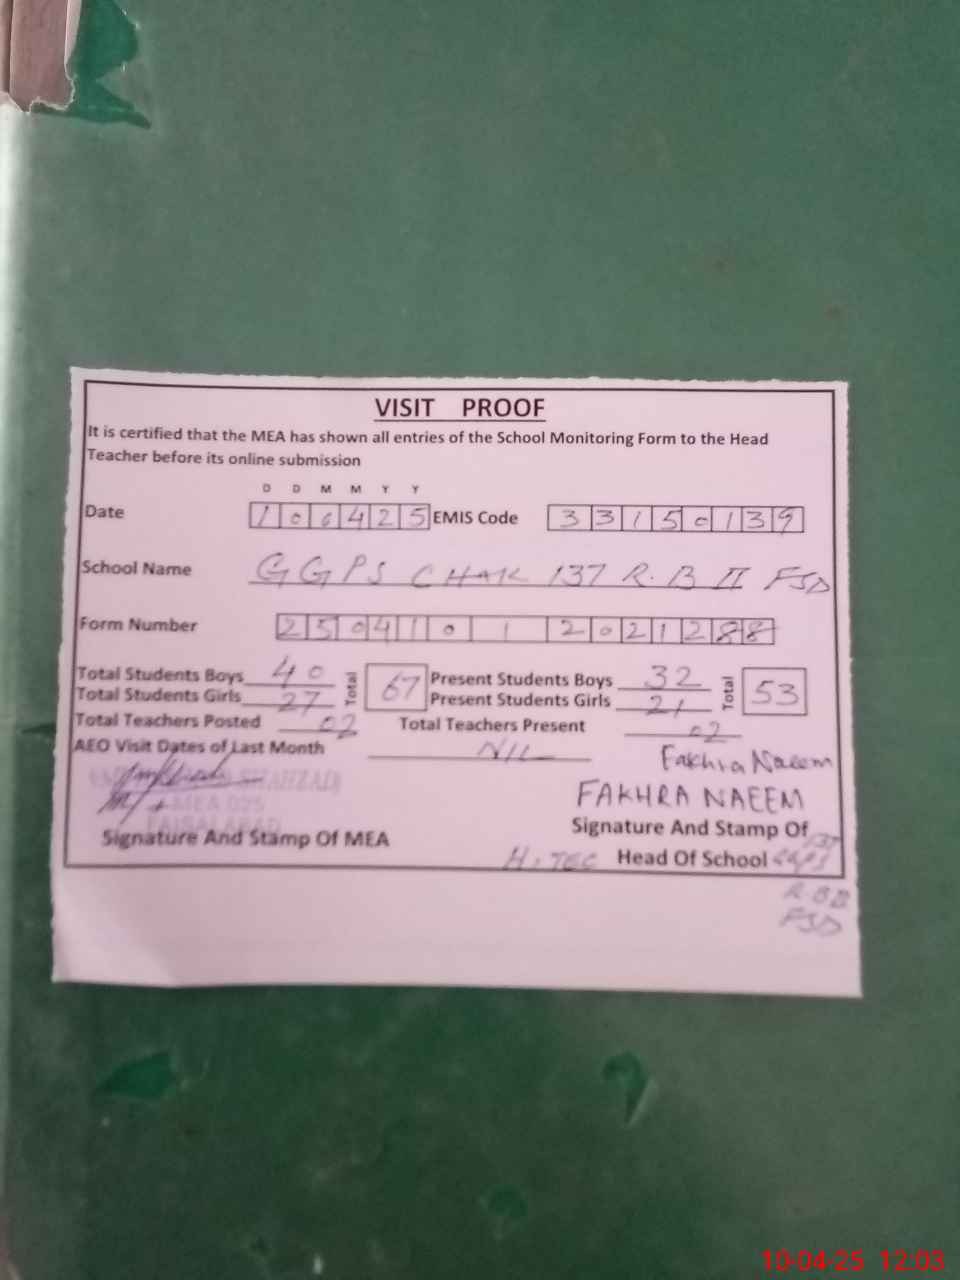 VISIT PROOF
It is certified that the MEA has shown all entries of the School Monitoring Form to the Head
Teacher before its online submission
D D M M Y Y
Date 1 0 0 4 2 5 EMIS Code 3 3 1 5 0 1 3 9
School Name GGPS CHAK 137 R.B II FSD
Form Number 2 5 0 4 1 0 1 2 0 2 1 2 8 8
Total Students Boys 40 Total 67 Present Students Boys 32 Total 53
Total Students Girls 27 Present Students Girls 21
Total Teachers Posted 02 Total Teachers Present 02
AEO Visit Dates of Last Month NIL
Fakhra Naeem
SHAHZAD
FAKHRA NAEEM
MEA 025
FAISALABAD
Signature And Stamp Of MEA
Signature And Stamp Of
H.TEC Head Of School GGPS
137
R.B II
FSD
10-04-25 12:03